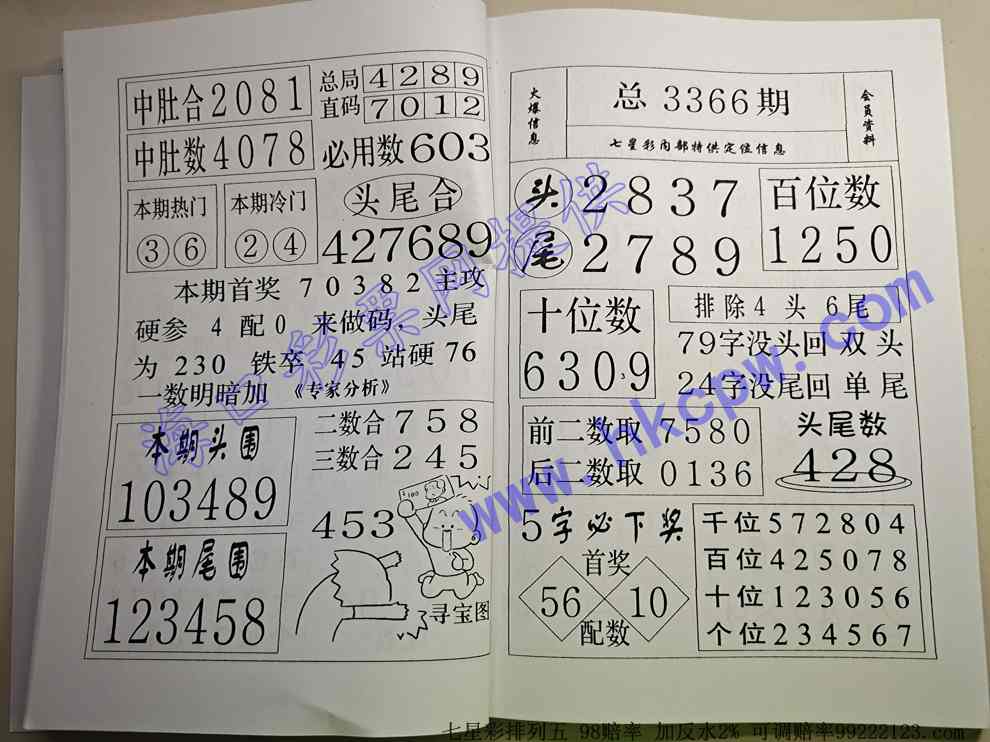 中肚合2081
中肚数4078
总局4289
直码7012
必用数603
本期热门
③⑥
本期冷门
②④
头尾合
427689
本期首奖 70382 主攻
硬参 4 配0 来做码,头尾
为 230 铁卒 45 站硬 76
一数明暗加 《专家分析》
本期头围
103489
本期尾围
123458
二数合758
三数合245
453
100
寻宝图
火爆信息
总 3366期
七星彩内部特供定位信息
会员资料
头2837
尾2789
百位数
1250
十位数
6309
排除4 头 6尾
79字没头回 双 头
24字没尾回 单 尾
前二数取 7580
后二数取 0136
头尾数
428
5字必下奖
首奖
56
10
配数
千位572804
百位425078
十位123056
个位234567
海口彩票网提供
www.hkcpw.com
七星彩排列五 98赔率 加反水2% 可调赔率99222123.com